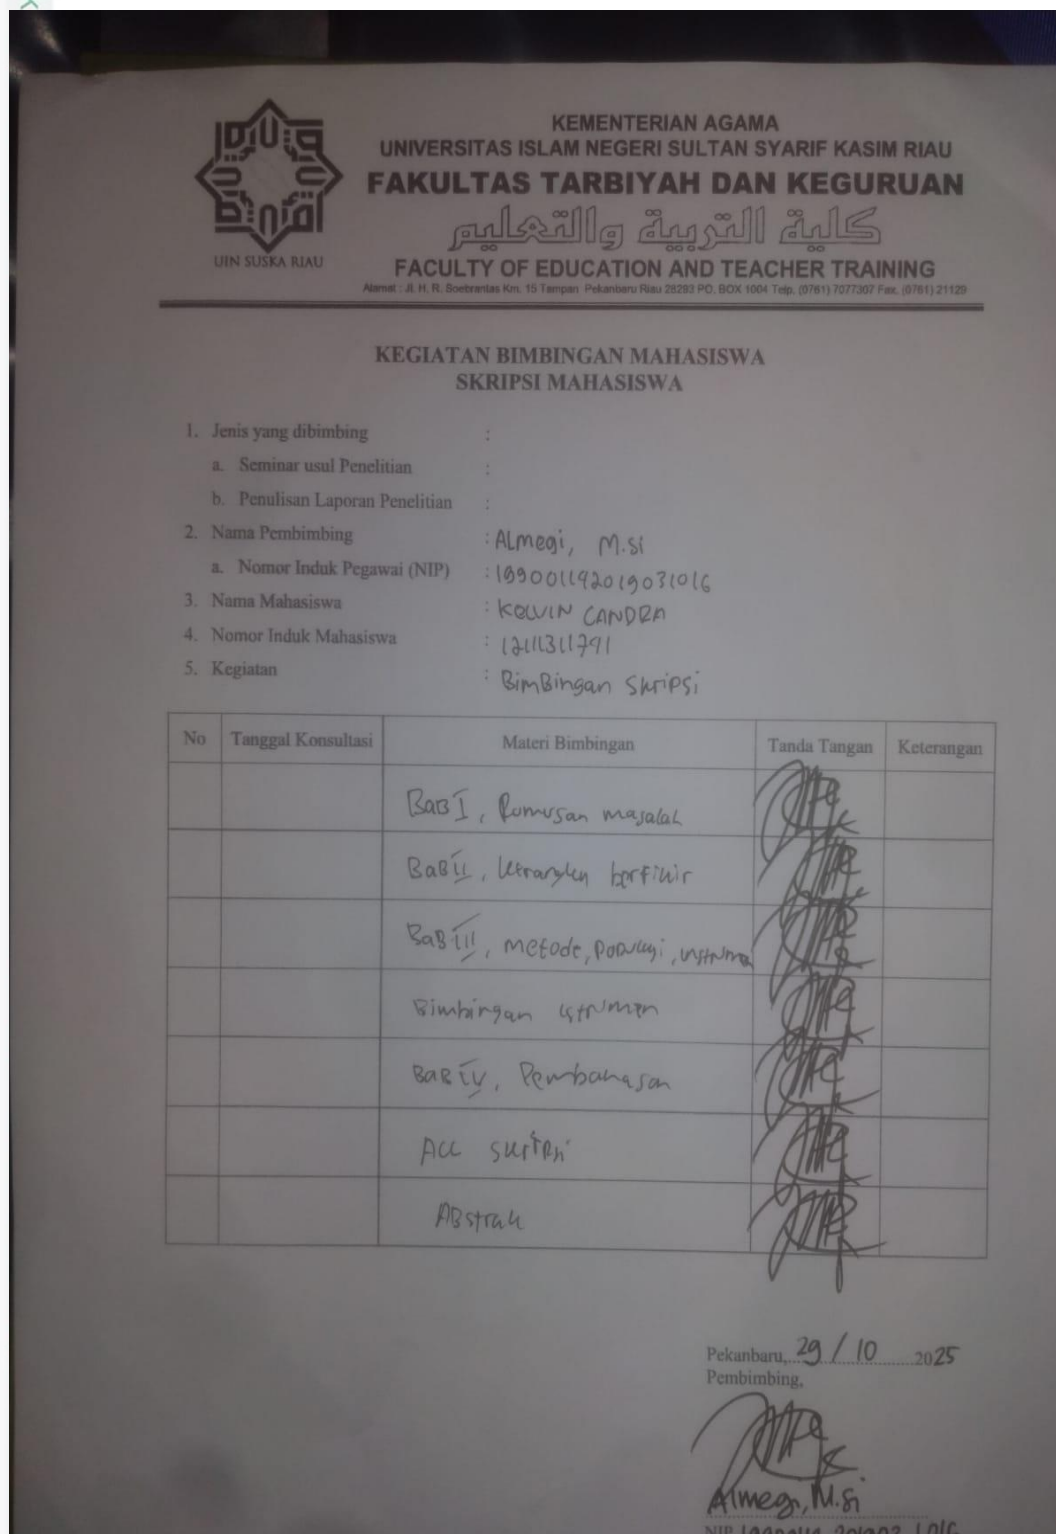 KEMENTERIAN AGAMA
UNIVERSITAS ISLAM NEGERI SULTAN SYARIF KASIM RIAU
FAKULTAS TARBIYAH DAN KEGURUAN
كلية التربية والتعليم
FACULTY OF EDUCATION AND TEACHER TRAINING
Alamat : Jl. H. R. Soebrantas Km. 15 Tampan Pekanbaru Riau 28293 PO. BOX 1004 Telp. (0761) 7077307 Fax. (0761) 21129
UIN SUSKA RIAU
KEGIATAN BIMBINGAN MAHASISWA
SKRIPSI MAHASISWA
1. Jenis yang dibimbing :
a. Seminar usul Penelitian :
b. Penulisan Laporan Penelitian :
2. Nama Pembimbing : Almegi, M.Si
a. Nomor Induk Pegawai (NIP) : 199001192019031016
3. Nama Mahasiswa : KELVIN CANDRA
4. Nomor Induk Mahasiswa : 12111311791
5. Kegiatan : BimBingan Skripsi
No Tanggal Konsultasi Materi Bimbingan Tanda Tangan Keterangan
BaB I, Rumusan masalah
BaB II, berfikir
BaB III, metode, populasi, instrumen
Bimbingan istrumen
BaB IV, Pembahasan
ACC skripsi
ABstrak
Pekanbaru, 29 / 10 2025
Pembimbing,
Almegi, M.Si
NIP